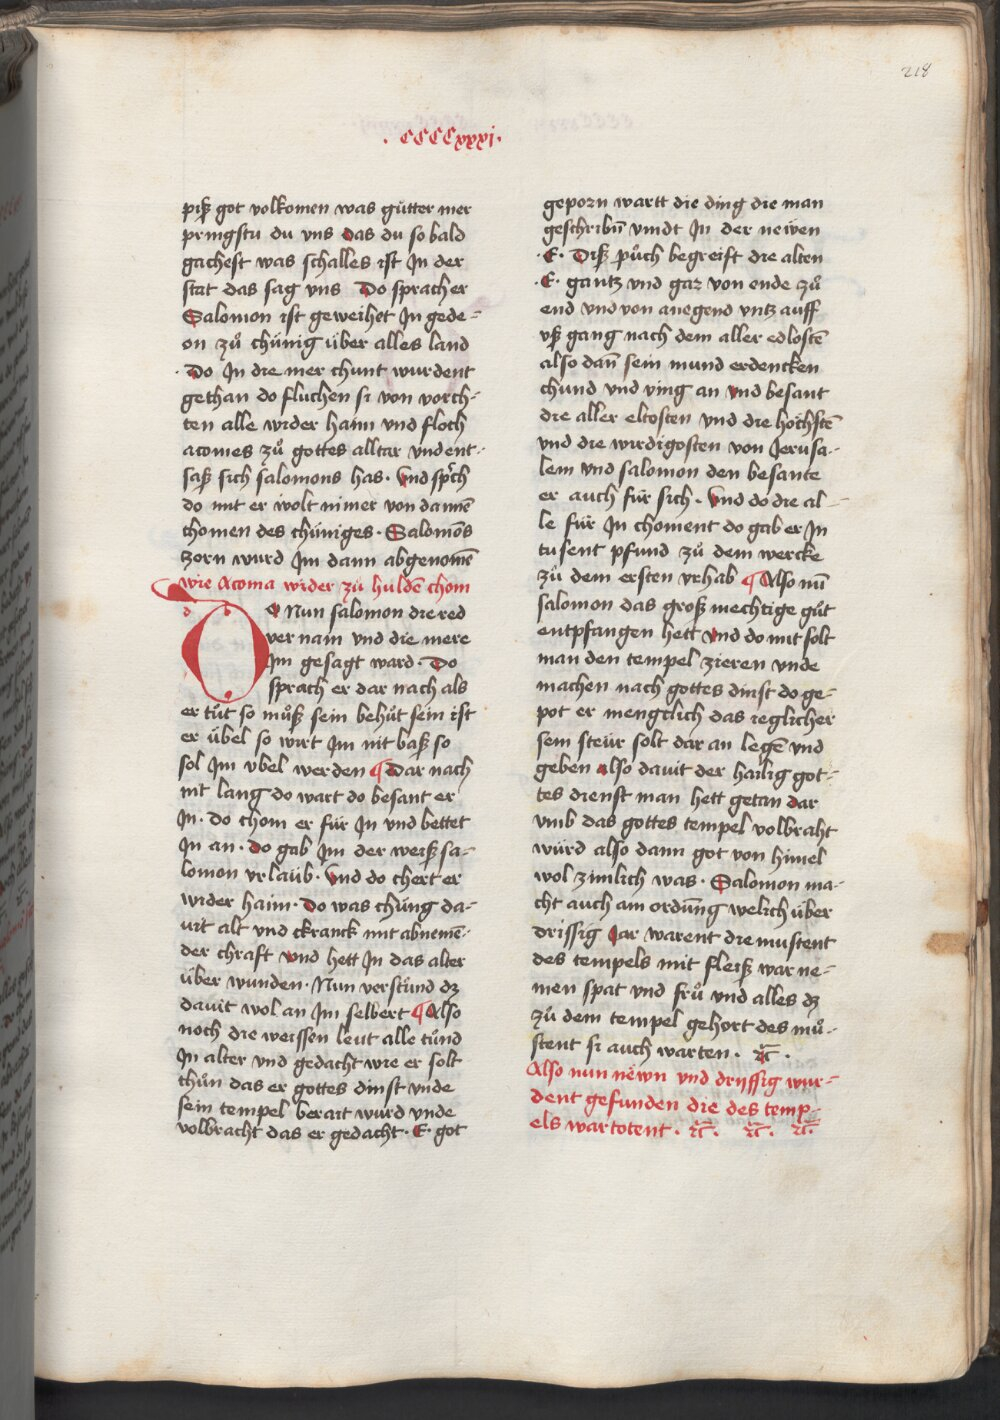 218
· CCCCxxxj ·
piß got volkomen was gůtter mer
pringstu du vns das du so bald
gachest was schalles ist Jn der
stat das sag vns Do sprach er
Salomon ist geweihet Jn gede⸗
on zů chünig über alles land
· Do Jn die mer chunt wurdent
gethan do fluchen si von vorch⸗
ten alle wider haim vnd floch
acomes zů gottes alltar vnd ent⸗
saß sich salomons has · Vnd sp̄rch
do mit er wolt nimer von dannē
chomen des chüniges · Salomōs
zorn wurd Jm dann abgenomē
wie Acoma wider zů huldē chom
DO Nun salomon die red
ver nam vnd die mere
Jm gesagt ward · Do
sprach er dar nach als
er tůt so můß sein behůt sein ist
er übel so wirt Jm nit baß so
sol Jm vbel werden ¶ Dar nach
nit lang do wart do besant er
Jn · do chom er für Jn vnd bettet
Jn an · do gab Jm der weiß sa⸗
lomon vrlaub · Vnd do chert er
wider haim · Do was chüng da⸗
uit alt vnd ckranck mit abnemē⸗
der chraft vnd hett Jn das alter
über wunden · Nun verstůnd dz
dauit wol an Jm selbert ¶ Also
noch die weissen leut alle tůnd
Jn alter vnd gedacht wie er solt
thůn das er gottes dinst vnde
sein tempel berait wurd vnde
volbracht das er gedacht · E · got
geporn wartt die ding die man
geschribn̄ vindt Jn der newen
· E · Diß půch begreift die alten
· E · gantz vnd gar von ende zů
end vnd von anegend vntz auff
vß gang nach dem aller edlostē
also dan̄ sein mund erdencken
chund vnd ving an vnd besant
die aller eltosten vnd die höchstē
vnd die wirdigosten von Jerusa⸗
lem vnd salomon den besante
er auch für sich · Vnd do die al⸗
le für Jn choment do gab er Jn
tusent pfund zů dem wercke
zů dem ersten vrhab ¶ Also nu̅
salomon das groß mechtige gůt
entpfangen hett vnd do mit solt
man den tempel zieren vnde
machen nach gottes dinst do ge⸗
pot er mengclich das ieglicher
sein steür solt dar an legē vnd
geben also dauit der hailig got⸗
tes dienst man hett getan dar
vmb das gottes tempel volbraht
würd also dann got von himel
wol zimlich was · Salomon ma⸗
cht auch am ordnu̅ng welich über
drissig Jar warent die mustent
des tempels mit fleiß war ne⸗
men spat vnd frů vnd alles dz
zů dem tempel gehort des mů⸗
stent si auch warten · ꝛc̄ ·
Also nun newn vnd dryssig wur⸗
dent gefunden die des temp⸗
els wartotent · ꝛc̄ · ꝛc̄ · ꝛc̄